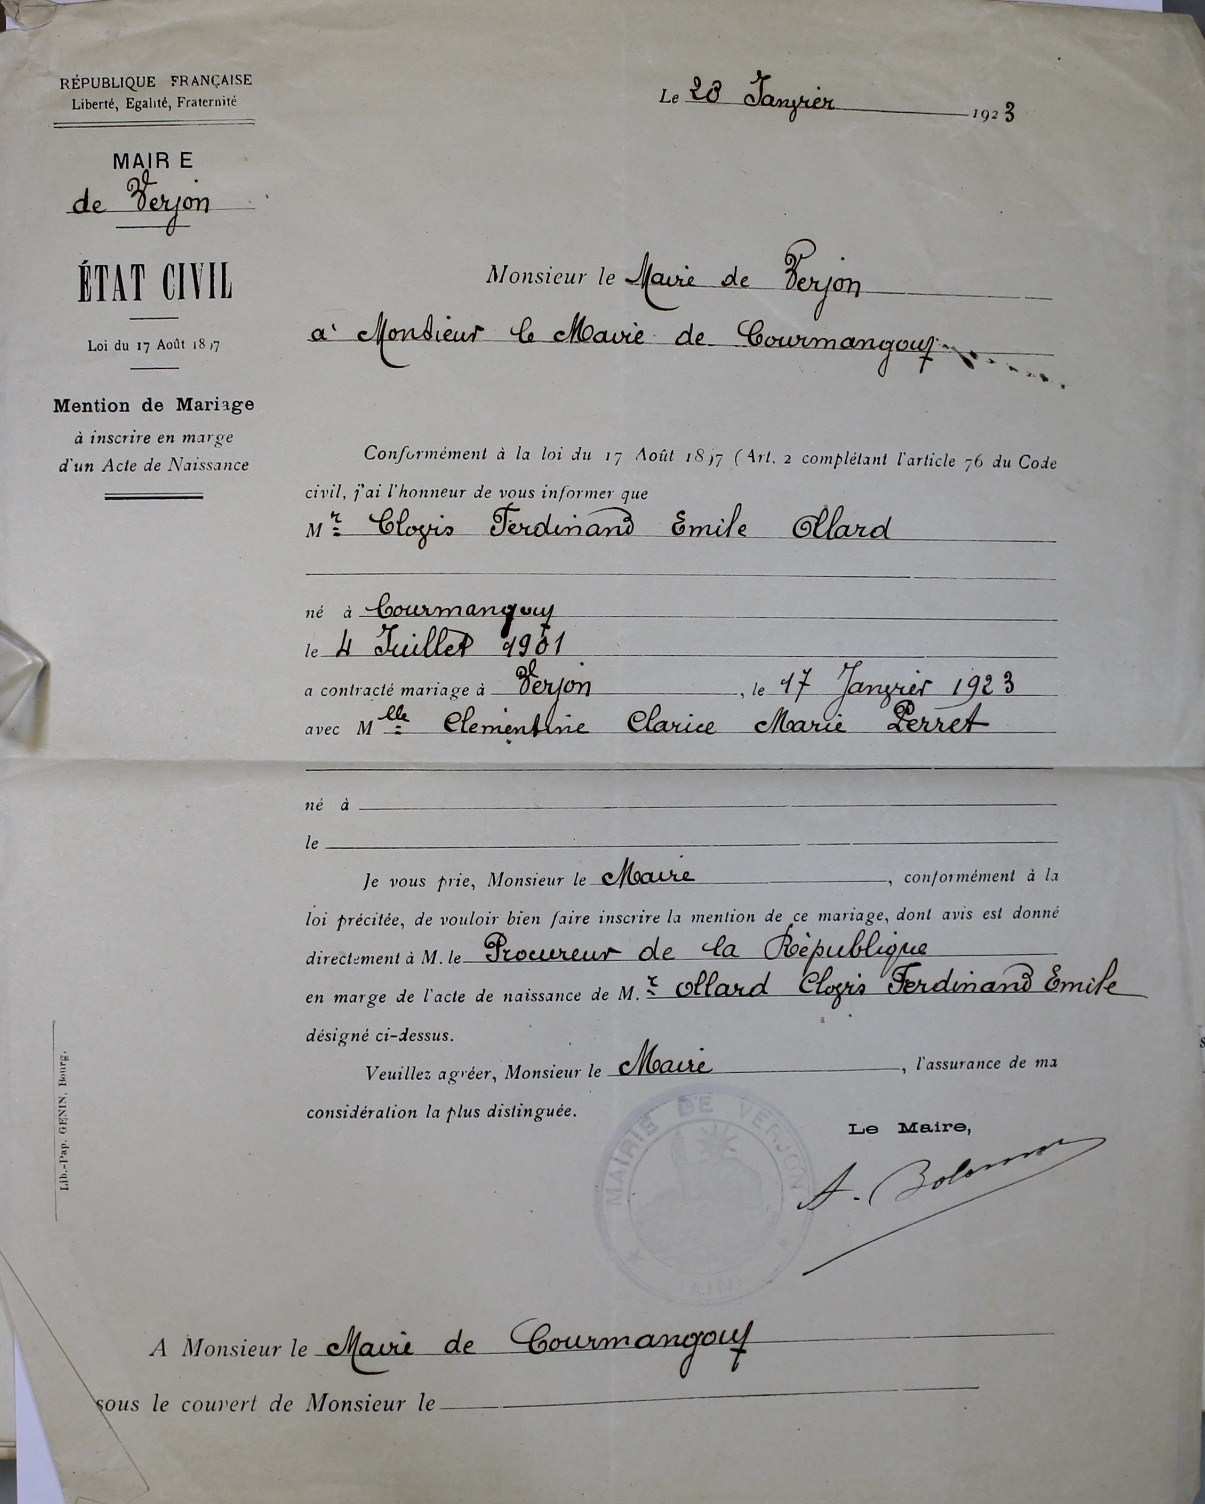 RÉPUBLIQUE FRANÇAISE
Liberté, Egalité, Fraternité
Le 23 Janvier 1923
MAIRE
de Verjon
ÉTAT CIVIL
Loi du 17 Août 1897
Mention de Mariage
à inscrire en marge
d'un Acte de Naissance
Monsieur le Maire de Verjon
à Monsieur le Maire de Courmangoux
Conformément à la loi du 17 Août 1897 (Art. 2 complétant l'article 76 du Code
civil, j'ai l'honneur de vous informer que
Mr Clovis Ferdinand Emile Ollard
né à Courmangoux
le 4 Juillet 1901
a contracté mariage à Verjon, le 17 Janvier 1923
avec Mlle Clémentine Clarice Marie Perret
né à
le
Je vous prie, Monsieur le Maire, conformément à la
loi précitée, de vouloir bien faire inscrire la mention de ce mariage, dont avis est donné
directement à M. le Procureur de la République
en marge de l'acte de naissance de M.r Ollard Clovis Ferdinand Emile
désigné ci-dessus.
Veuillez agréer, Monsieur le Maire, l'assurance de ma
considération la plus distinguée.
Le Maire,
MAIRIE DE VERJON
AIN
Lib.-Pap. GENIN, Bourg.
A Monsieur le Maire de Courmangoux
sous le couvert de Monsieur le